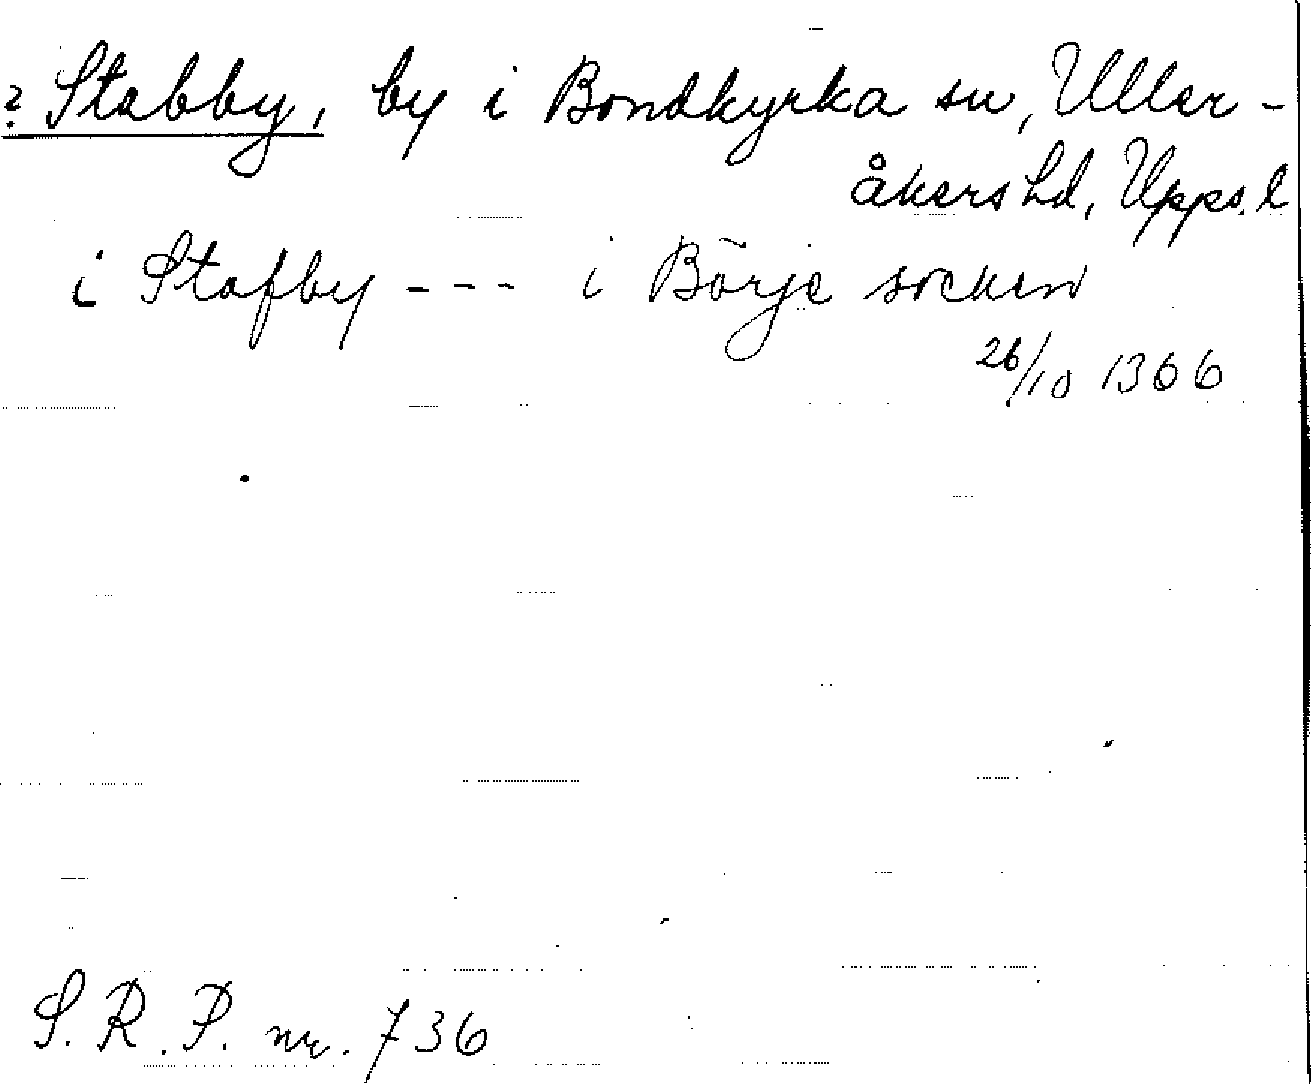 ? Stabby, by i Bondkyrka sn, Uller-
åkers hd, Upps. l
i Stafby --- i Börje socken
26/10 1366
S. R. P. nr. 736